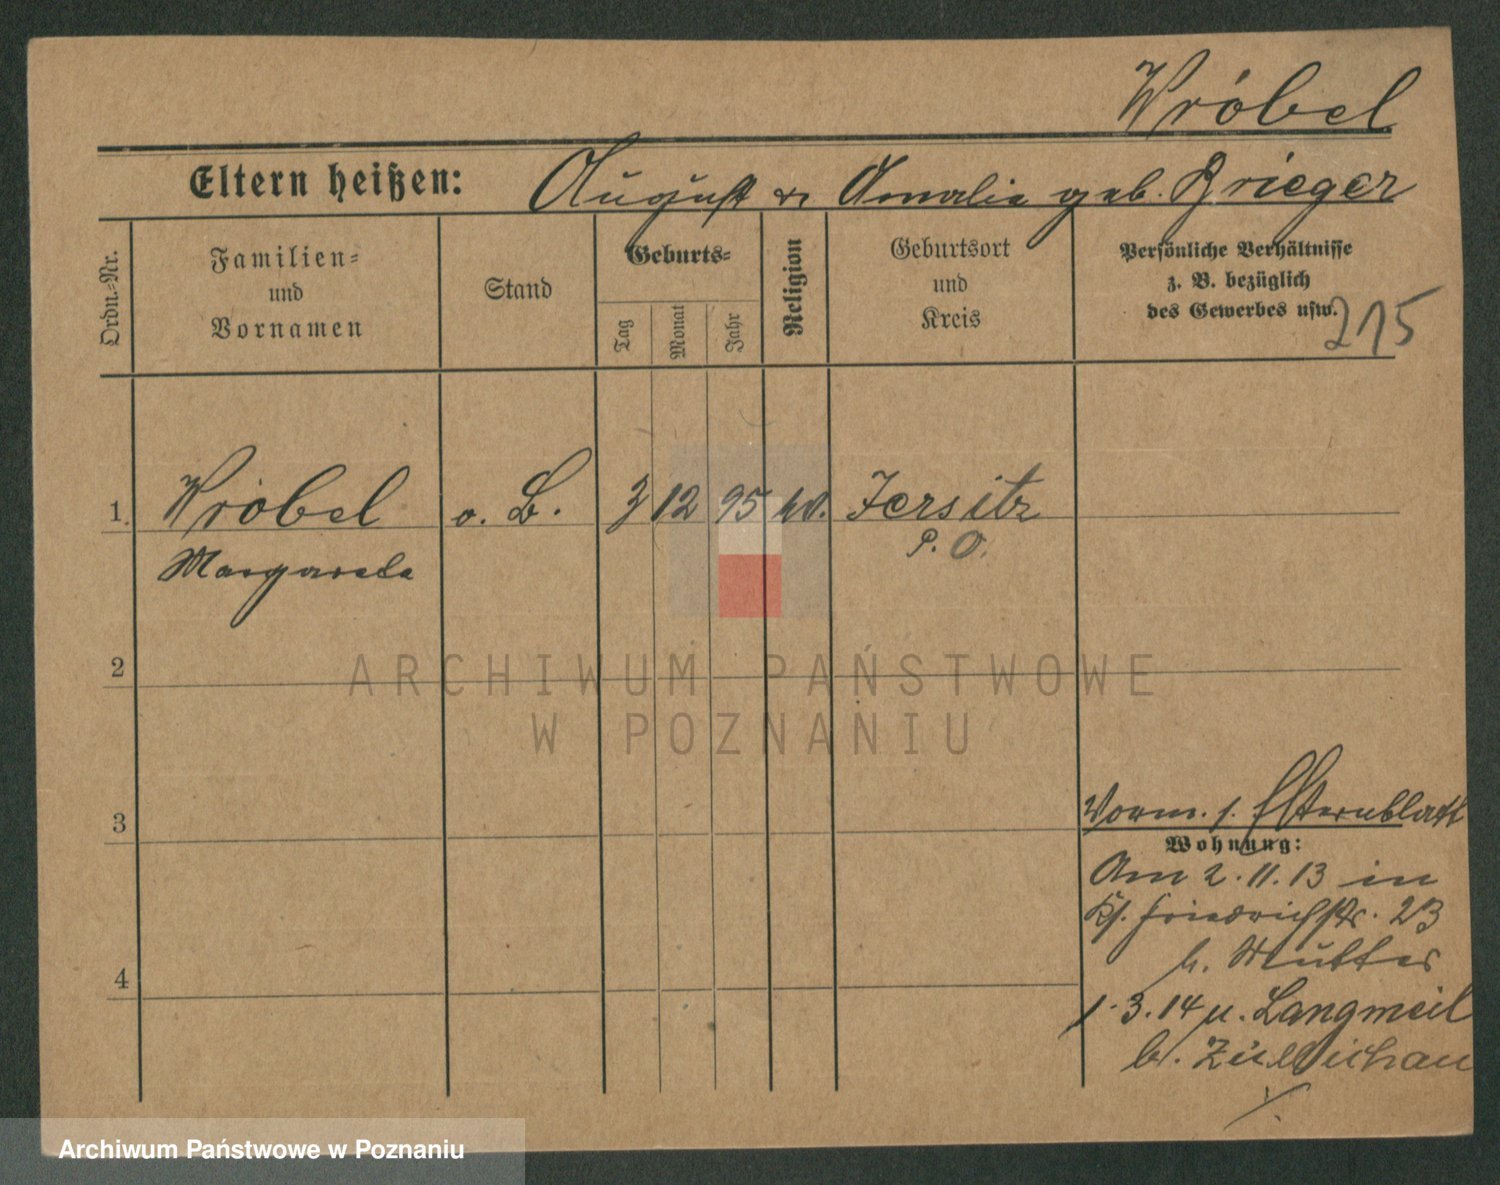 Wróbel
Eltern heißen: August u. Amalie geb. Krieger
Ordn.-Nr.
Familien-
und
Vornamen
Stand
Geburts-
Tag
Monat
Jahr
Religion
Geburtsort
und
Kreis
Persönliche Verhältnisse
z. B. bezüglich
des Gewerbes usw.
215
1. Wróbel o. B. 3 12 95 Jersitz
Margarete P. O.
2
3
4
Vorm. s. Elternblatt
Wohnung:
Am 2.11.13 in
Friedrichstr. 23
b. Mutter
1.3.14 n. Langmeil
b. Züllichau
ARCHIWUM PAŃSTWOWE
W POZNANIU
Archiwum Państwowe w Poznaniu